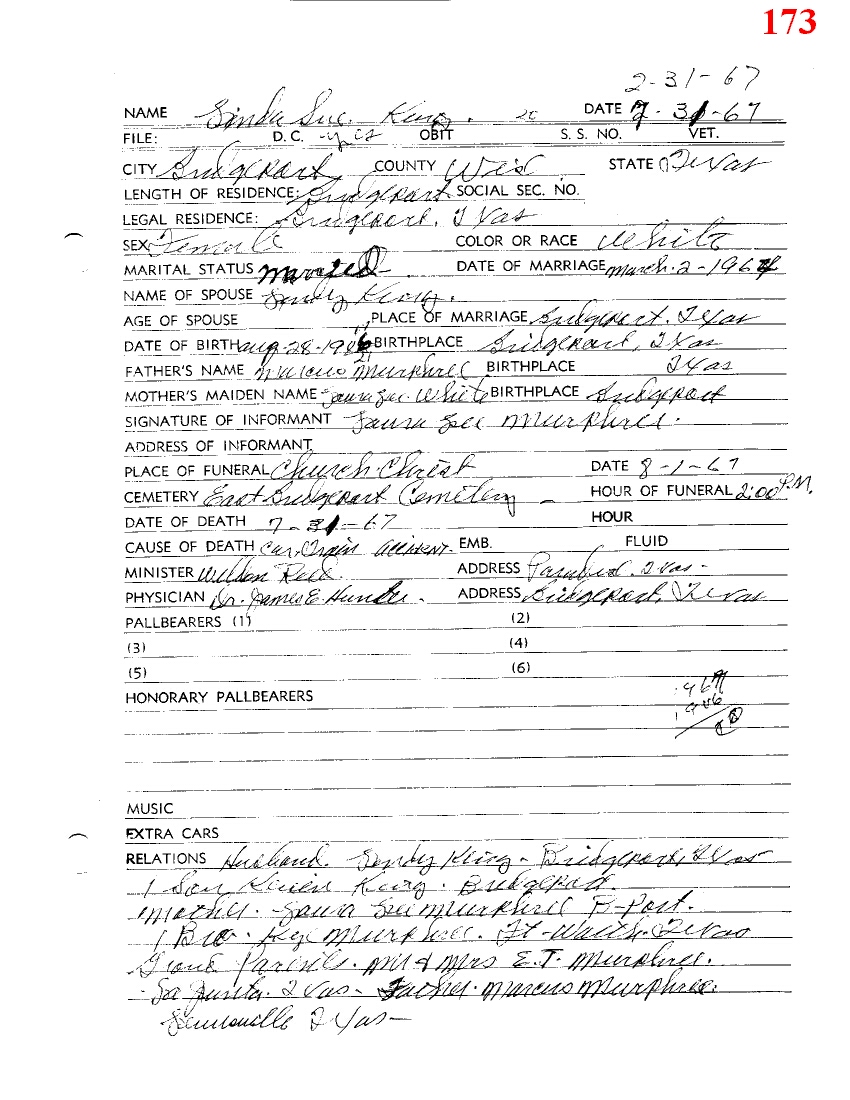 173
2-31-67
NAME Linda Sue King. DATE 7-31-67
FILE: D.C. yes OBIT S. S. NO. VET.
CITY Bridgeport COUNTY Wise STATE Texas
LENGTH OF RESIDENCE: Bridgeport SOCIAL SEC. NO.
LEGAL RESIDENCE: Bridgeport, Texas
SEX Female COLOR OR RACE White
MARITAL STATUS Married DATE OF MARRIAGE March-2-1964
NAME OF SPOUSE King.
AGE OF SPOUSE PLACE OF MARRIAGE Bridgeport, Texas
DATE OF BIRTH Aug-28-1946 BIRTHPLACE Bridgeport, Texas
FATHER'S NAME Marcus Murphree BIRTHPLACE Texas
MOTHER'S MAIDEN NAME Laura Lee White BIRTHPLACE Bridgeport
SIGNATURE OF INFORMANT Laura Lee Murphree.
ADDRESS OF INFORMANT
PLACE OF FUNERAL Church Christ DATE 8-1-67
CEMETERY East Bridgeport Cemetery HOUR OF FUNERAL 2:00 P.M.
DATE OF DEATH 7-31-67 HOUR
CAUSE OF DEATH Car, Train accident. EMB. FLUID
MINISTER Reed ADDRESS Texas
PHYSICIAN Dr. James E. Hunter. ADDRESS Bridgeport, Texas
PALLBEARERS (1) (2)
(3) (4)
(5) (6)
HONORARY PALLBEARERS
MUSIC
EXTRA CARS
RELATIONS Husband. King - Bridgeport, Texas
1 Son King. Bridgeport.
Mother. Laura Lee Murphree B-Port.
1 Bro. Murphree. Ft-Worth. Texas
Grand Parents. Mr & Mrs E.T. Murphree.
Texas - Father. Marcus Murphree.
Texas-